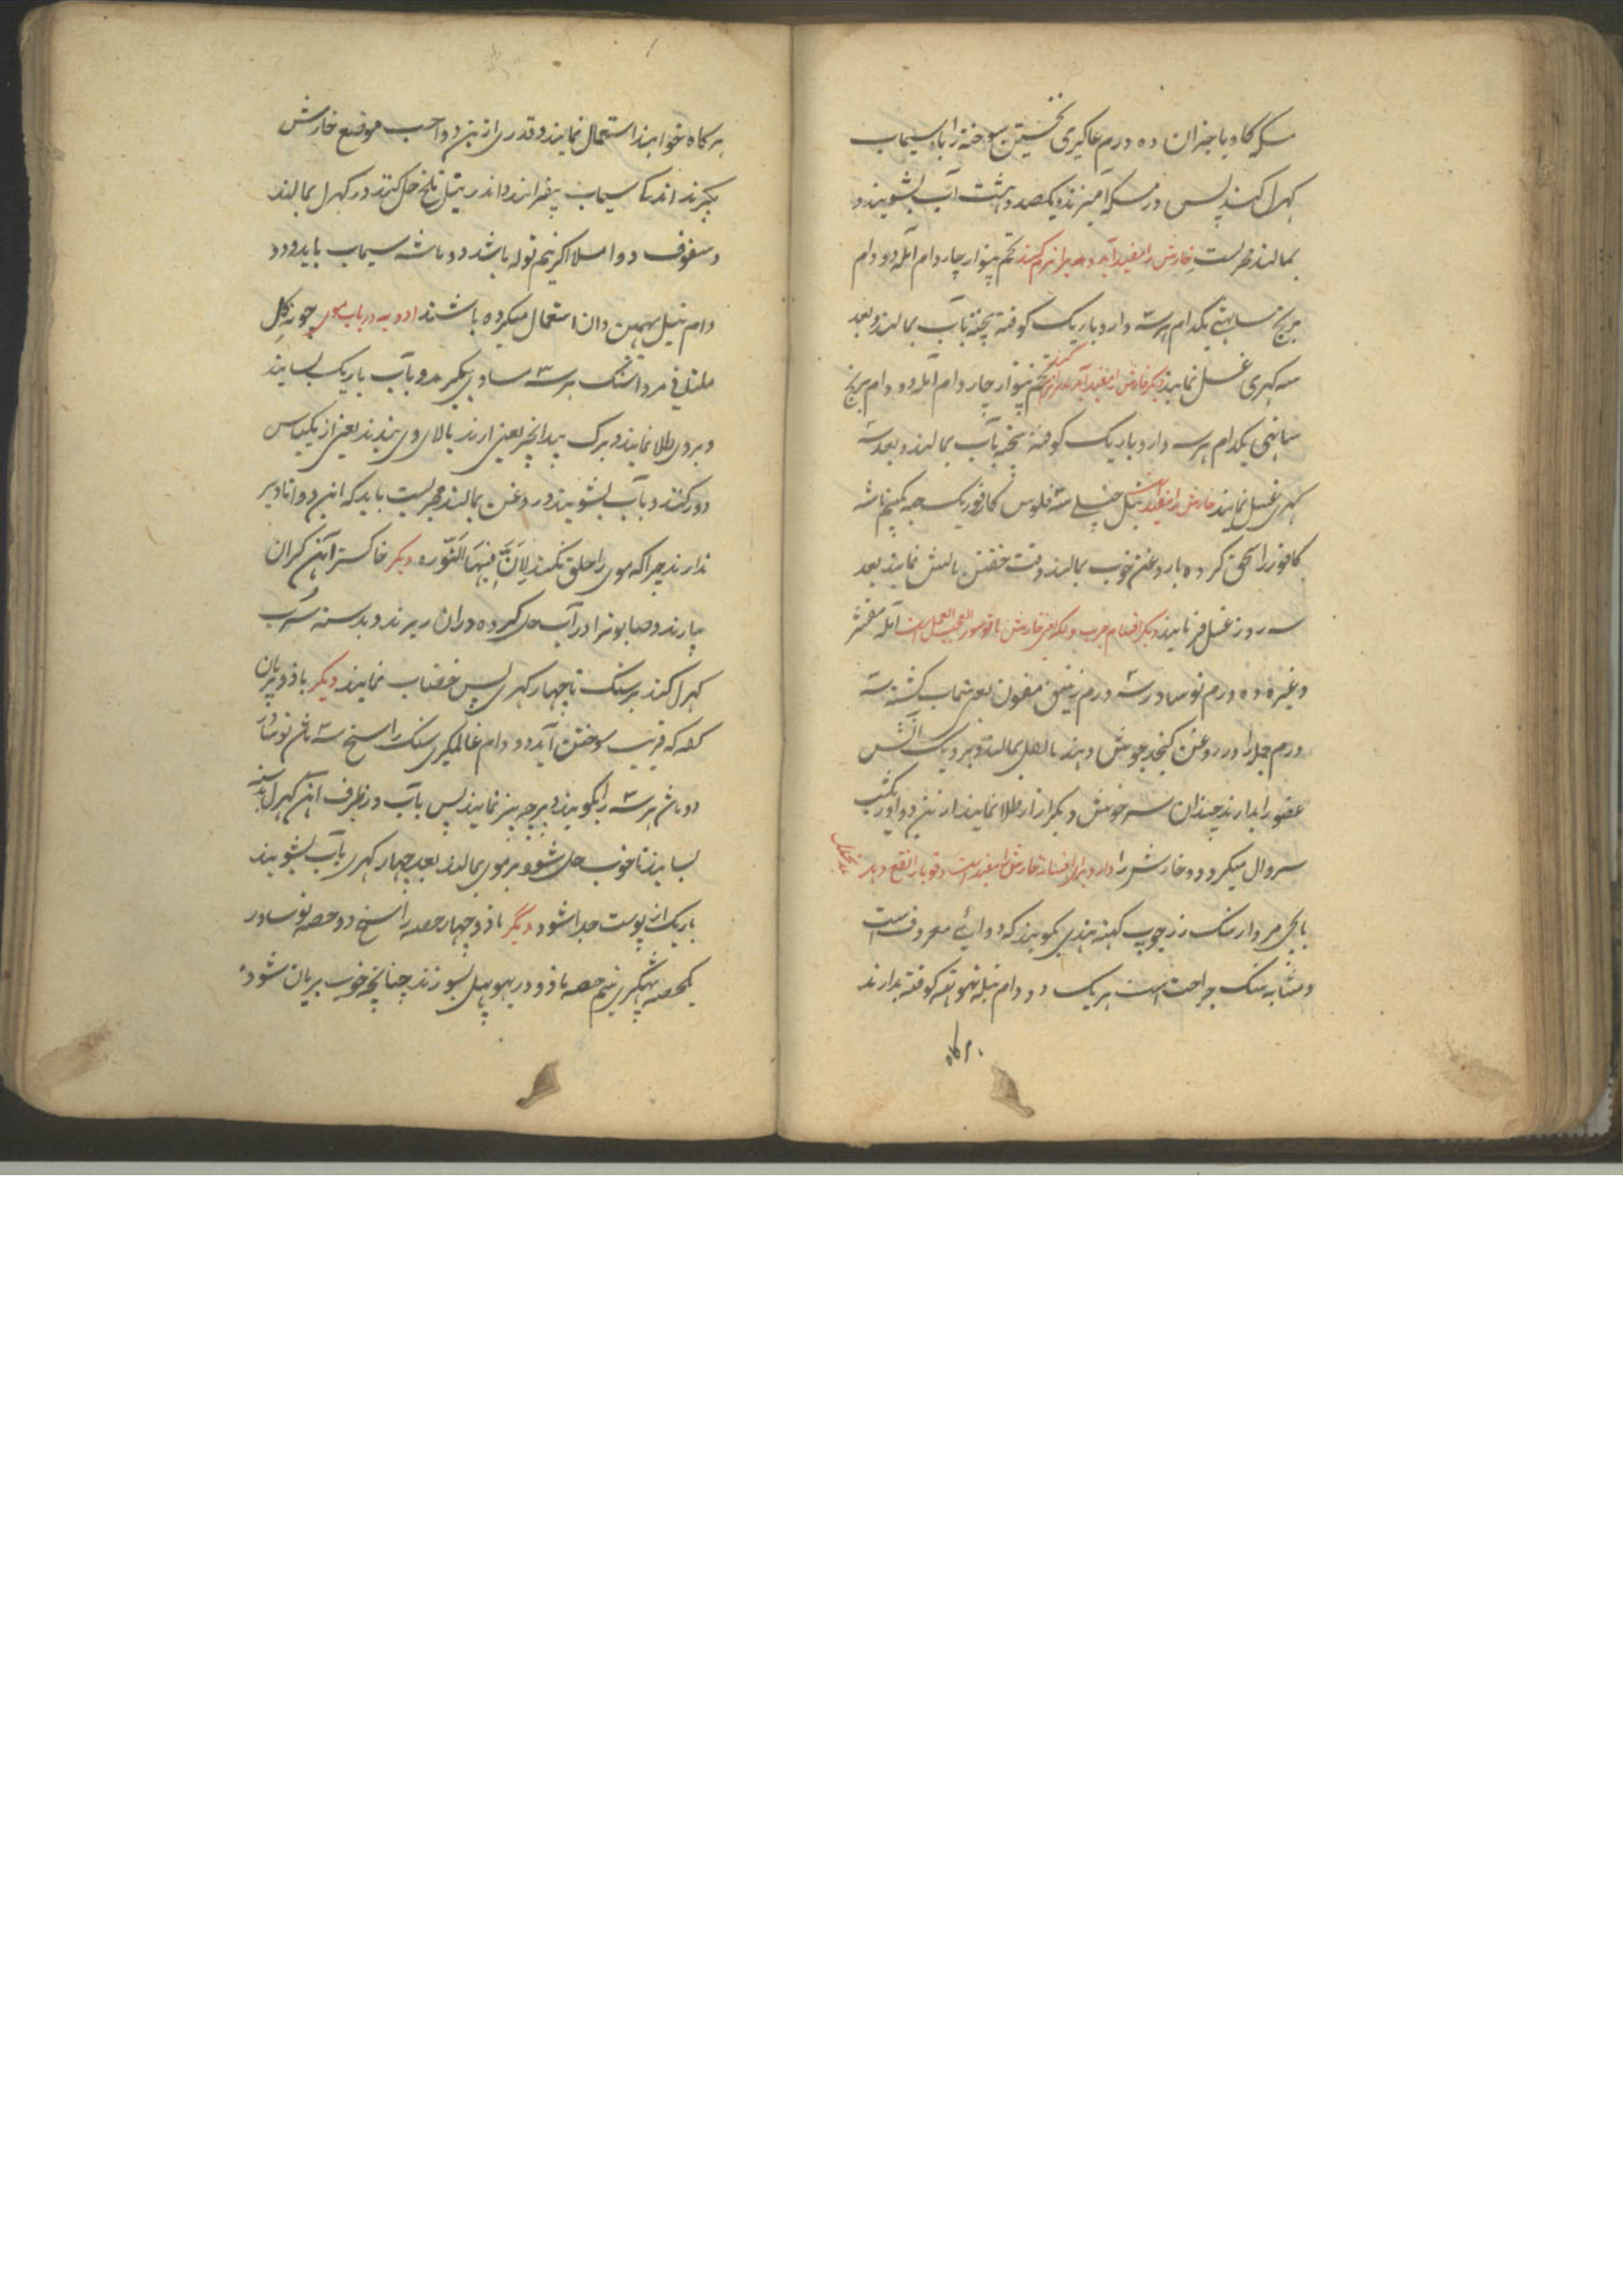 مسکه کاو یا جزان ده درم عاکیری نخستین سوخته را با سیماب
کهرل کنند پس در مسکه آمیزند و یکصد و هشت آب بشویند و
بمالند مجربست خارش را مفید آید و جلد را نرم کند تخم پنوار چار دام آمله دو دام
برنج ساتهی یکدام هر سه دارو باریک کوفته بیخته بآب بمالند و بعد
سه کهری غسل نمایند دیکر خارش را مفید آید تخم پنوار چار دام آمله دو دام برنج
ساتهی یکدام هر سه دارو باریک کوفته بیخته بآب بمالند و بعد سه
کهری غسل نمایند خارش را مفید است تیل سه فلوس کافور یک نیم ماشه
کافور را سحق کرده با روغن خوب بمالند وقت خفتن مالش نمایند بعد
سه روز غسل فرمایند دیکر اقسام جرب و حکه یعنی خارش آمله مقشر
وغیره ده درم نوسادر سه درم زیبق مقتول یعنی سیماب کشته سه
درم جمله را در روغن کنجد جوش دهند بالفعل بمالند و بر دیک آتش
عضو را بدارند چندان سه خوش دیکر ازار طلا نمایند از ین دوا در یکشب
سروال میکرد و خارش را دارو برای خارش مفید است و قوبا را نفع دهد
بابچی مردار سنک زرچوب کهنه هندی کویند که دوایی معروف است
و مشابه سنک جراحت است هر یک دو دام نیله تهوتهه کوفته بدارند
هر کاه
هر کاه خواهند استعمال نمایند و قدری از ین دوا حسب موضع خارش
بکیرند اندک سیماب بیفزایند و اندر تیل تلخ حل کنند در کهرل بمالند
و سفوف دوا مثلا اکر نیم توله باشد دو ماشه سیماب باید و دو
دام تیل بهمین دان استعمال میکرده باشند ادویه در باب موی چونه کل
ملتانی مرداسنک هر سه مساوی بکیرند و بآب باریک بسایند
و بر وی طلا نمایند و برک بیدانجیر یعنی ارند بالای وی بندند بعد از یکپاس
دور کنند و بآب بشویند و روغن بمالند مجربست باید که این دوا تا دیر
ندارند چرا که موی را حلق نکند لان فیها النوره دیکر خاکستر آهن کران
بیارند و صابون را در آب حل کرده دران ریزند و بدسته سرب
کهرل کنند بر سنک تا چهار کهری پس خضاب نمایند دیکر مازو بریان
کند که قریب سوختن آید دو دام عالمکیری سنک راسخ سه ماش نوسادر
دو ماش هر سه را بکوبند و پرچه بیز نمایند پس بآب در ظرف آهن کهرل بدسته
بسایند تا خوب حل شود و بر موی بمالند بعد چهار کهری بآب بشویند
باریک از پوست جدا شود دیگر مازو چهار حصه راسخ دو حصه نوسادر
یکحصه پهتکری نیم حصه مازو در بهوبهل بسوزند چنانچه خوب بریان شود